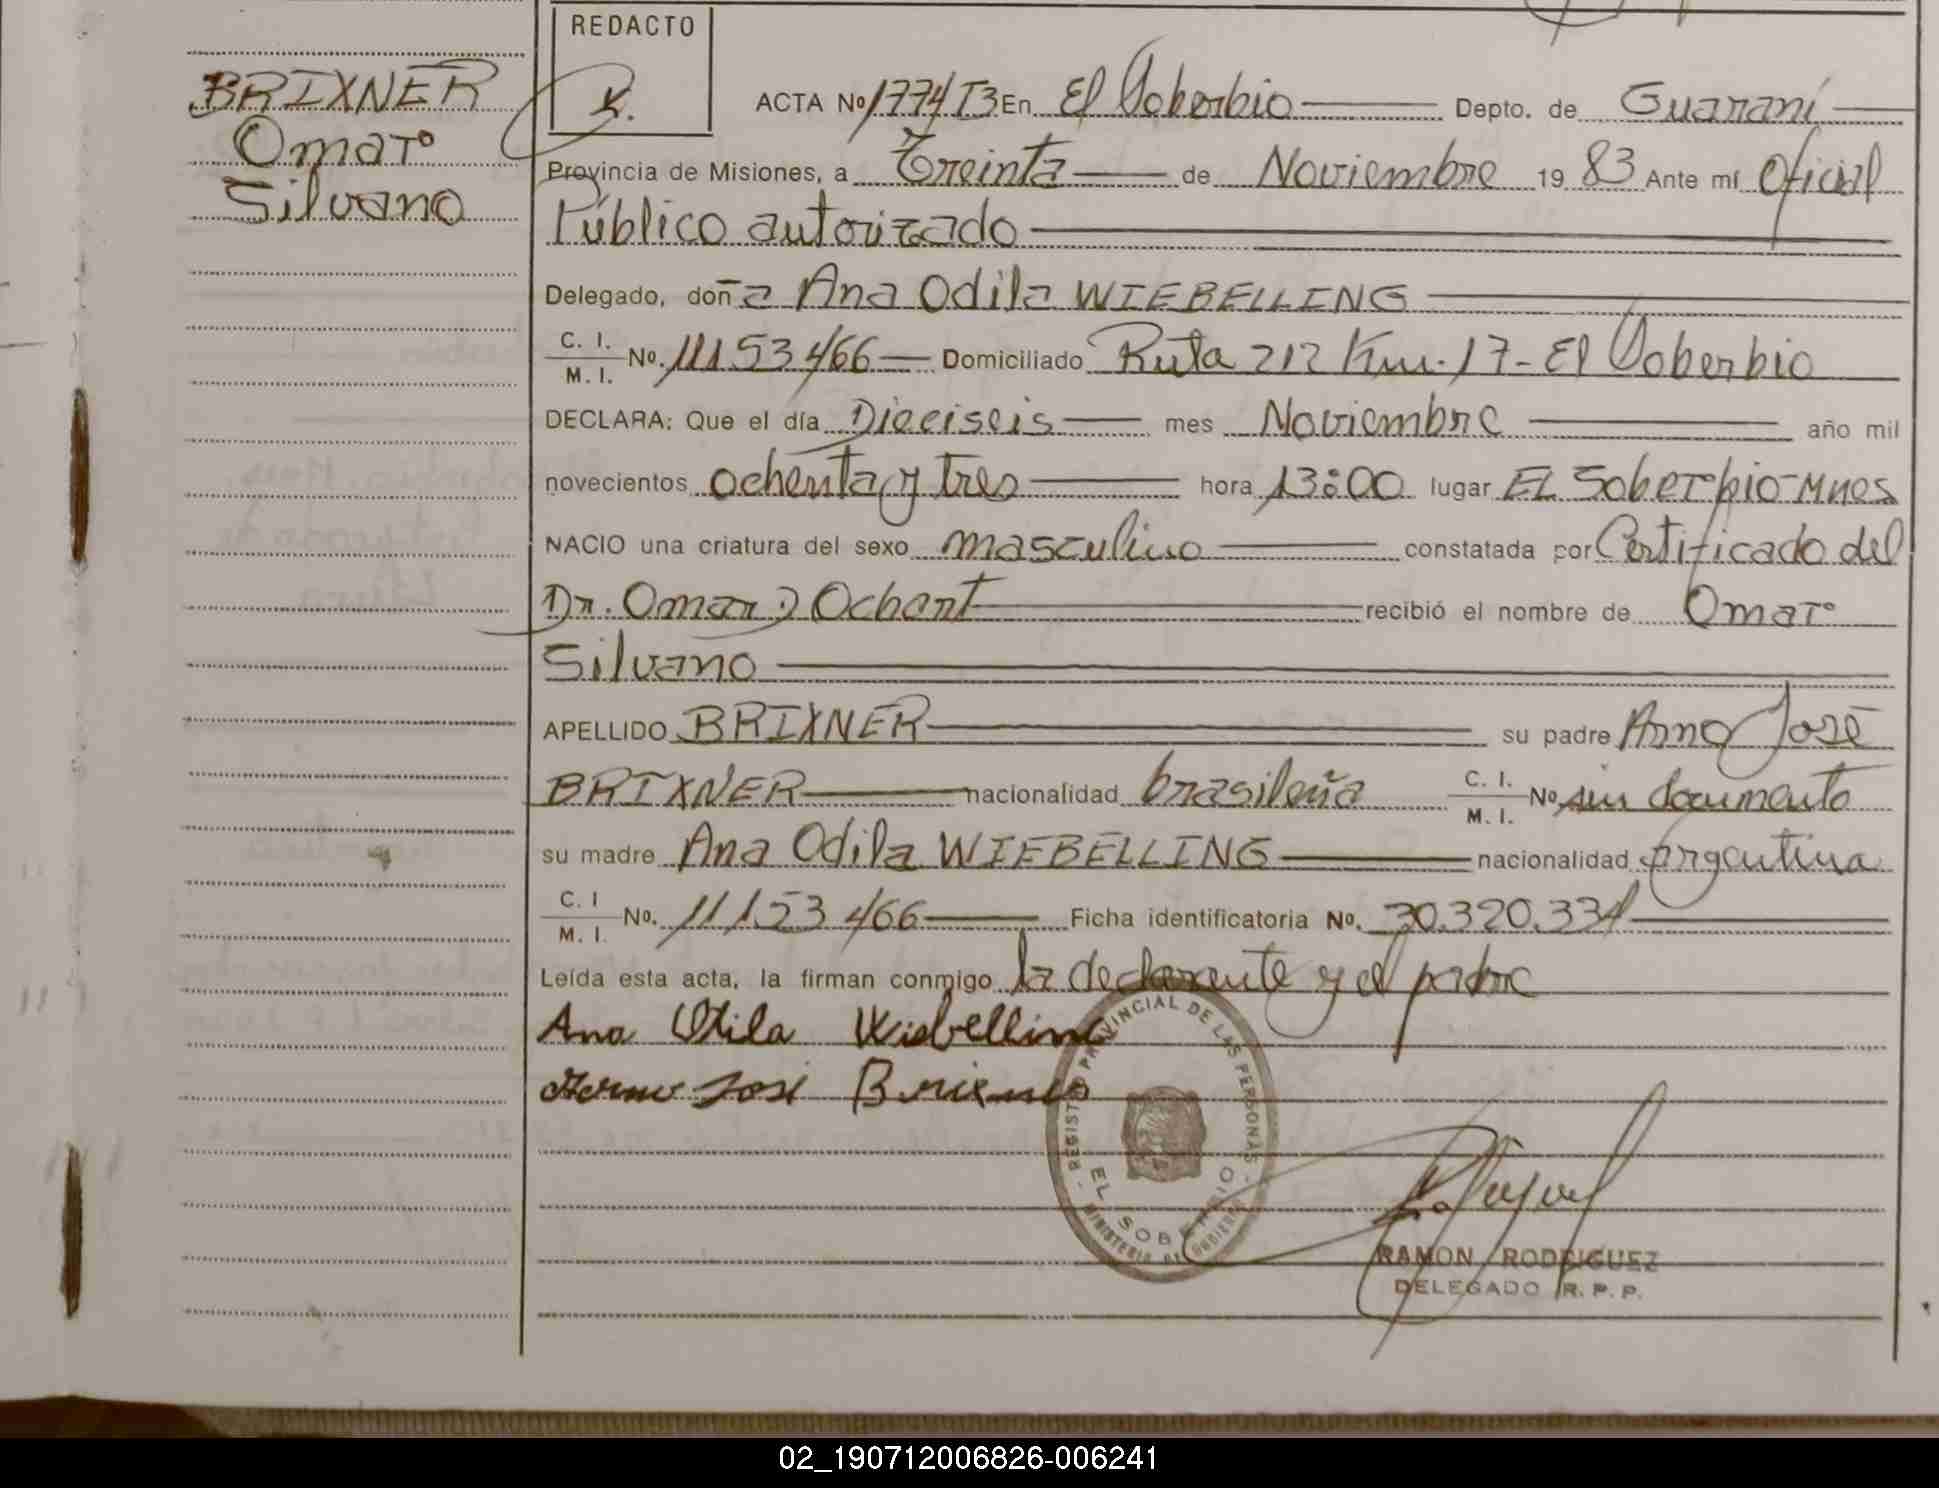 REDACTO
BRIXNER
Omar
Silvano
ACTA No 1774 T3 En El Soberbio Depto. de Guaraní
Provincia de Misiones, a Treinta de Noviembre 19 83 Ante mí Oficial
Público autorizado
Delegado, doña Ana Odila WIEBELLING
C. I. M. I. No. 11153466 Domiciliado Ruta 212 Km. 17 - El Soberbio
DECLARA: Que el día Dieciseis mes Noviembre año mil
novecientos ochenta y tres hora 13:00 lugar EL Soberbio - Mnes
NACIO una criatura del sexo masculino constatada por Certificado del
Dr. Omar D Ochant recibió el nombre de Omar
Silvano
APELLIDO BRIXNER su padre Arno José
BRIXNER nacionalidad brasileña C. I. M. I. No sin documento
su madre Ana Odila WIEBELLING nacionalidad argentina
C. I M. I. No. 11153466 Ficha identificatoria No. 30.320.334
Leída esta acta, la firman conmigo la declarante y el padre
Ana Otila Wiebelling
José
REGISTRO PROVINCIAL DE LAS PERSONAS
EL SOBERBIO
MINISTERIO DE GOBIERNO
RAMON RODRIGUEZ
DELEGADO R. P. P.
02_190712006826-006241